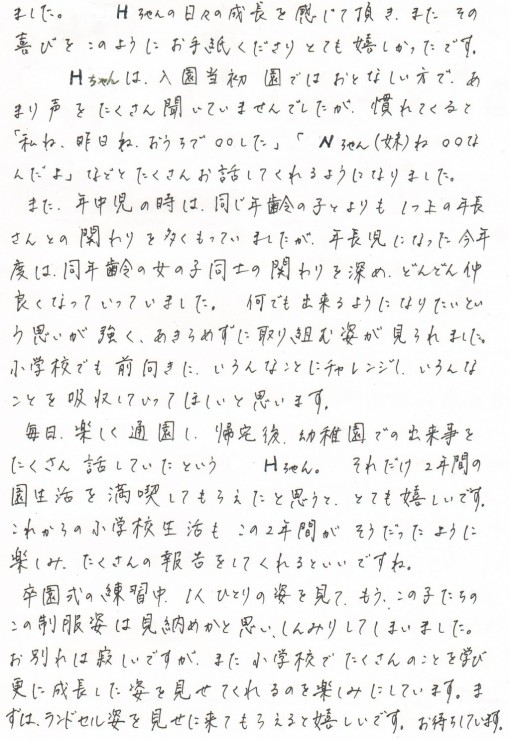 ました。 Hちゃんの日々の成長を感じて頂き、また その
喜びを このように お手紙くださり とても嬉しかったです。
Hちゃんは、入園当初 園では おとなしい方で、あ
まり声を たくさん聞いていませんでしたが、慣れてくると
「私ね、昨日ね、おうちで〇〇した」「Nちゃん(妹)ね 〇〇な
んだよ」などと たくさんお話してくれるようになりました。
また、年中児の時は、同じ年齢の子とよりも 1つ上の年長
さんとの関わりを多くもっていましたが、年長児になった今年
度は、同年齢の女の子同士の関わりを深め、どんどん仲
良くなっていっていました。 何でも出来るようになりたいとい
う思いが強く、あきらめずに取り組む姿が見られました。
小学校でも 前向きに、いろんなことにチャレンジし、いろんな
ことを吸収していってほしいと思います。
毎日、楽しく通園し、帰宅後、幼稚園での出来事を
たくさん 話していたという Hちゃん。 それだけ2年間の
園生活を満喫してもらえたと思うと、とても嬉しいです。
これからの小学校生活も この2年間が そうだったように
楽しみ、たくさんの報告をしてくれるといいですね。
卒園式の練習中、1人ひとりの姿を見て、もう、この子たちの
この制服姿は見納めかと思い、しんみりしてしまいました。
お別れは寂しいですが、また 小学校で たくさんのことを学び
更に成長した姿を見せてくれるのを楽しみにしています。ま
ずは、ランドセル姿を見せに来てもらえると嬉しいです。お待ちしています。